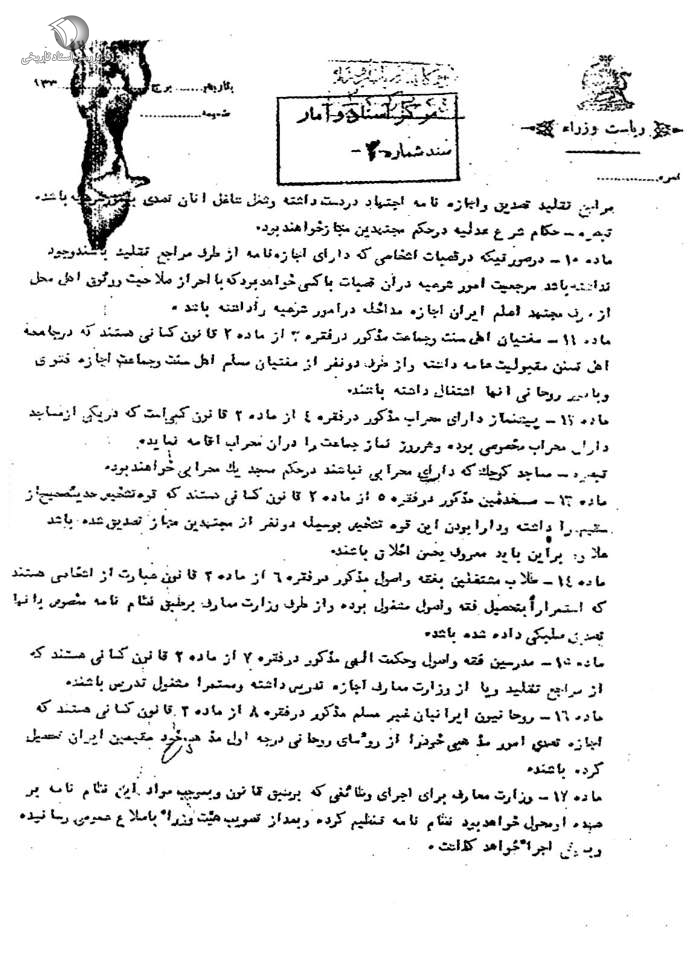 اسناد تاریخی
ریاست وزراء
بتاریخ ......... برج ......... ۱۳۳
ضمیمه ..............
نمره ..............
مرکز اسناد و آمار
سند شماره ۲-
مراجع تقلید تصدیق واجازه نامه اجتهاد دردست داشته وشغل شاغل انان تصدی بامور باشد.
تبصره - حکام شرع عدلیه درحکم مجتهدین مجازخواهندبود.
ماده ۱۰- درصورتیکه درقصبات اشخاصی که دارای اجازه نامه از طرف مراجع تقلید باشندوجود
نداشته باشد مرجعیت امور شرعیه دران قصبات باکسی خواهدبودکه با احراز صلاحیت و وثوق اهل محل
از طرف مجتهد اعلم ایران اجازه مداخله درامور شرعیه راداشته باشد .
ماده ۱۱- مفتیان اهل سنت وجماعت مذکور درفقره ۳ از ماده ۲ قانون کسانی هستند که درجامعه
اهل تسنن مقبولیت عامه داشته واز طرف دونفر از مفتیان مسلم اهل سنت وجماعت اجازه فتوی
وبامور روحانی آنها اشتغال داشته باشند.
ماده ۱۲- پیشنماز دارای محراب مذکور درفقره ٤ از ماده ۲ قانون کسی است که دریکی ازمساجد
دارای محراب مخصوصی بوده وهرروز نماز جماعت را دران محراب اقامه نماید.
تبصره - مساجد کوچک که دارای محرابی نباشند درحکم مسجد یک محرابی خواهندبود.
ماده ۱۳- محدثین مذکور درفقره ۵ از ماده ۲ قانون کسانی هستند که قوه تشخیص حدیث صحیح از
سقیم را داشته ودارابودن این قوه تشخیص بوسیله دونفر از مجتهدین مجاز تصدیق شده باشد
علاوه براین باید معروف بحسن اخلاق باشند.
ماده ۱٤- طلاب مشتغلین بفقه واصول مذکور درفقره ٦ از ماده ۲ قانون عبارت از اشخاصی هستند
که استمراراً بتحصیل فقه واصول مشغول بوده واز طرف وزارت معارف برطبق نظام نامه مخصوص بانها
تصدیق طلبگی داده شده باشد.
ماده ۱۵- مدرسین فقه واصول وحکمت الهی مذکور درفقره ۷ از ماده ۲ قانون کسانی هستند که
از مراجع تقلید ویا از وزارت معارف اجازه تدریس داشته ومستمرا مشغول تدریس باشند.
ماده ۱٦- روحانیون ایرانیان غیر مسلم مذکور درفقره ۸ از ماده ۲ قانون کسانی هستند که
اجازه تصدی امور مذهبی خودرا از روسای روحانی درجه اول مذهب خود مقیمین ایران تحصیل
کرده باشند.
ماده ۱۷- وزارت معارف برای اجرای وظائفی که برطبق قانون وبموجب مواد این نظام نامه بر
عهده اومحول خواهدبود نظام نامه تنظیم کرده وبعداز تصویب هیئت وزراء باطلاع عمومی رسانیده
وبموقع اجراء خواهد گذاشت .